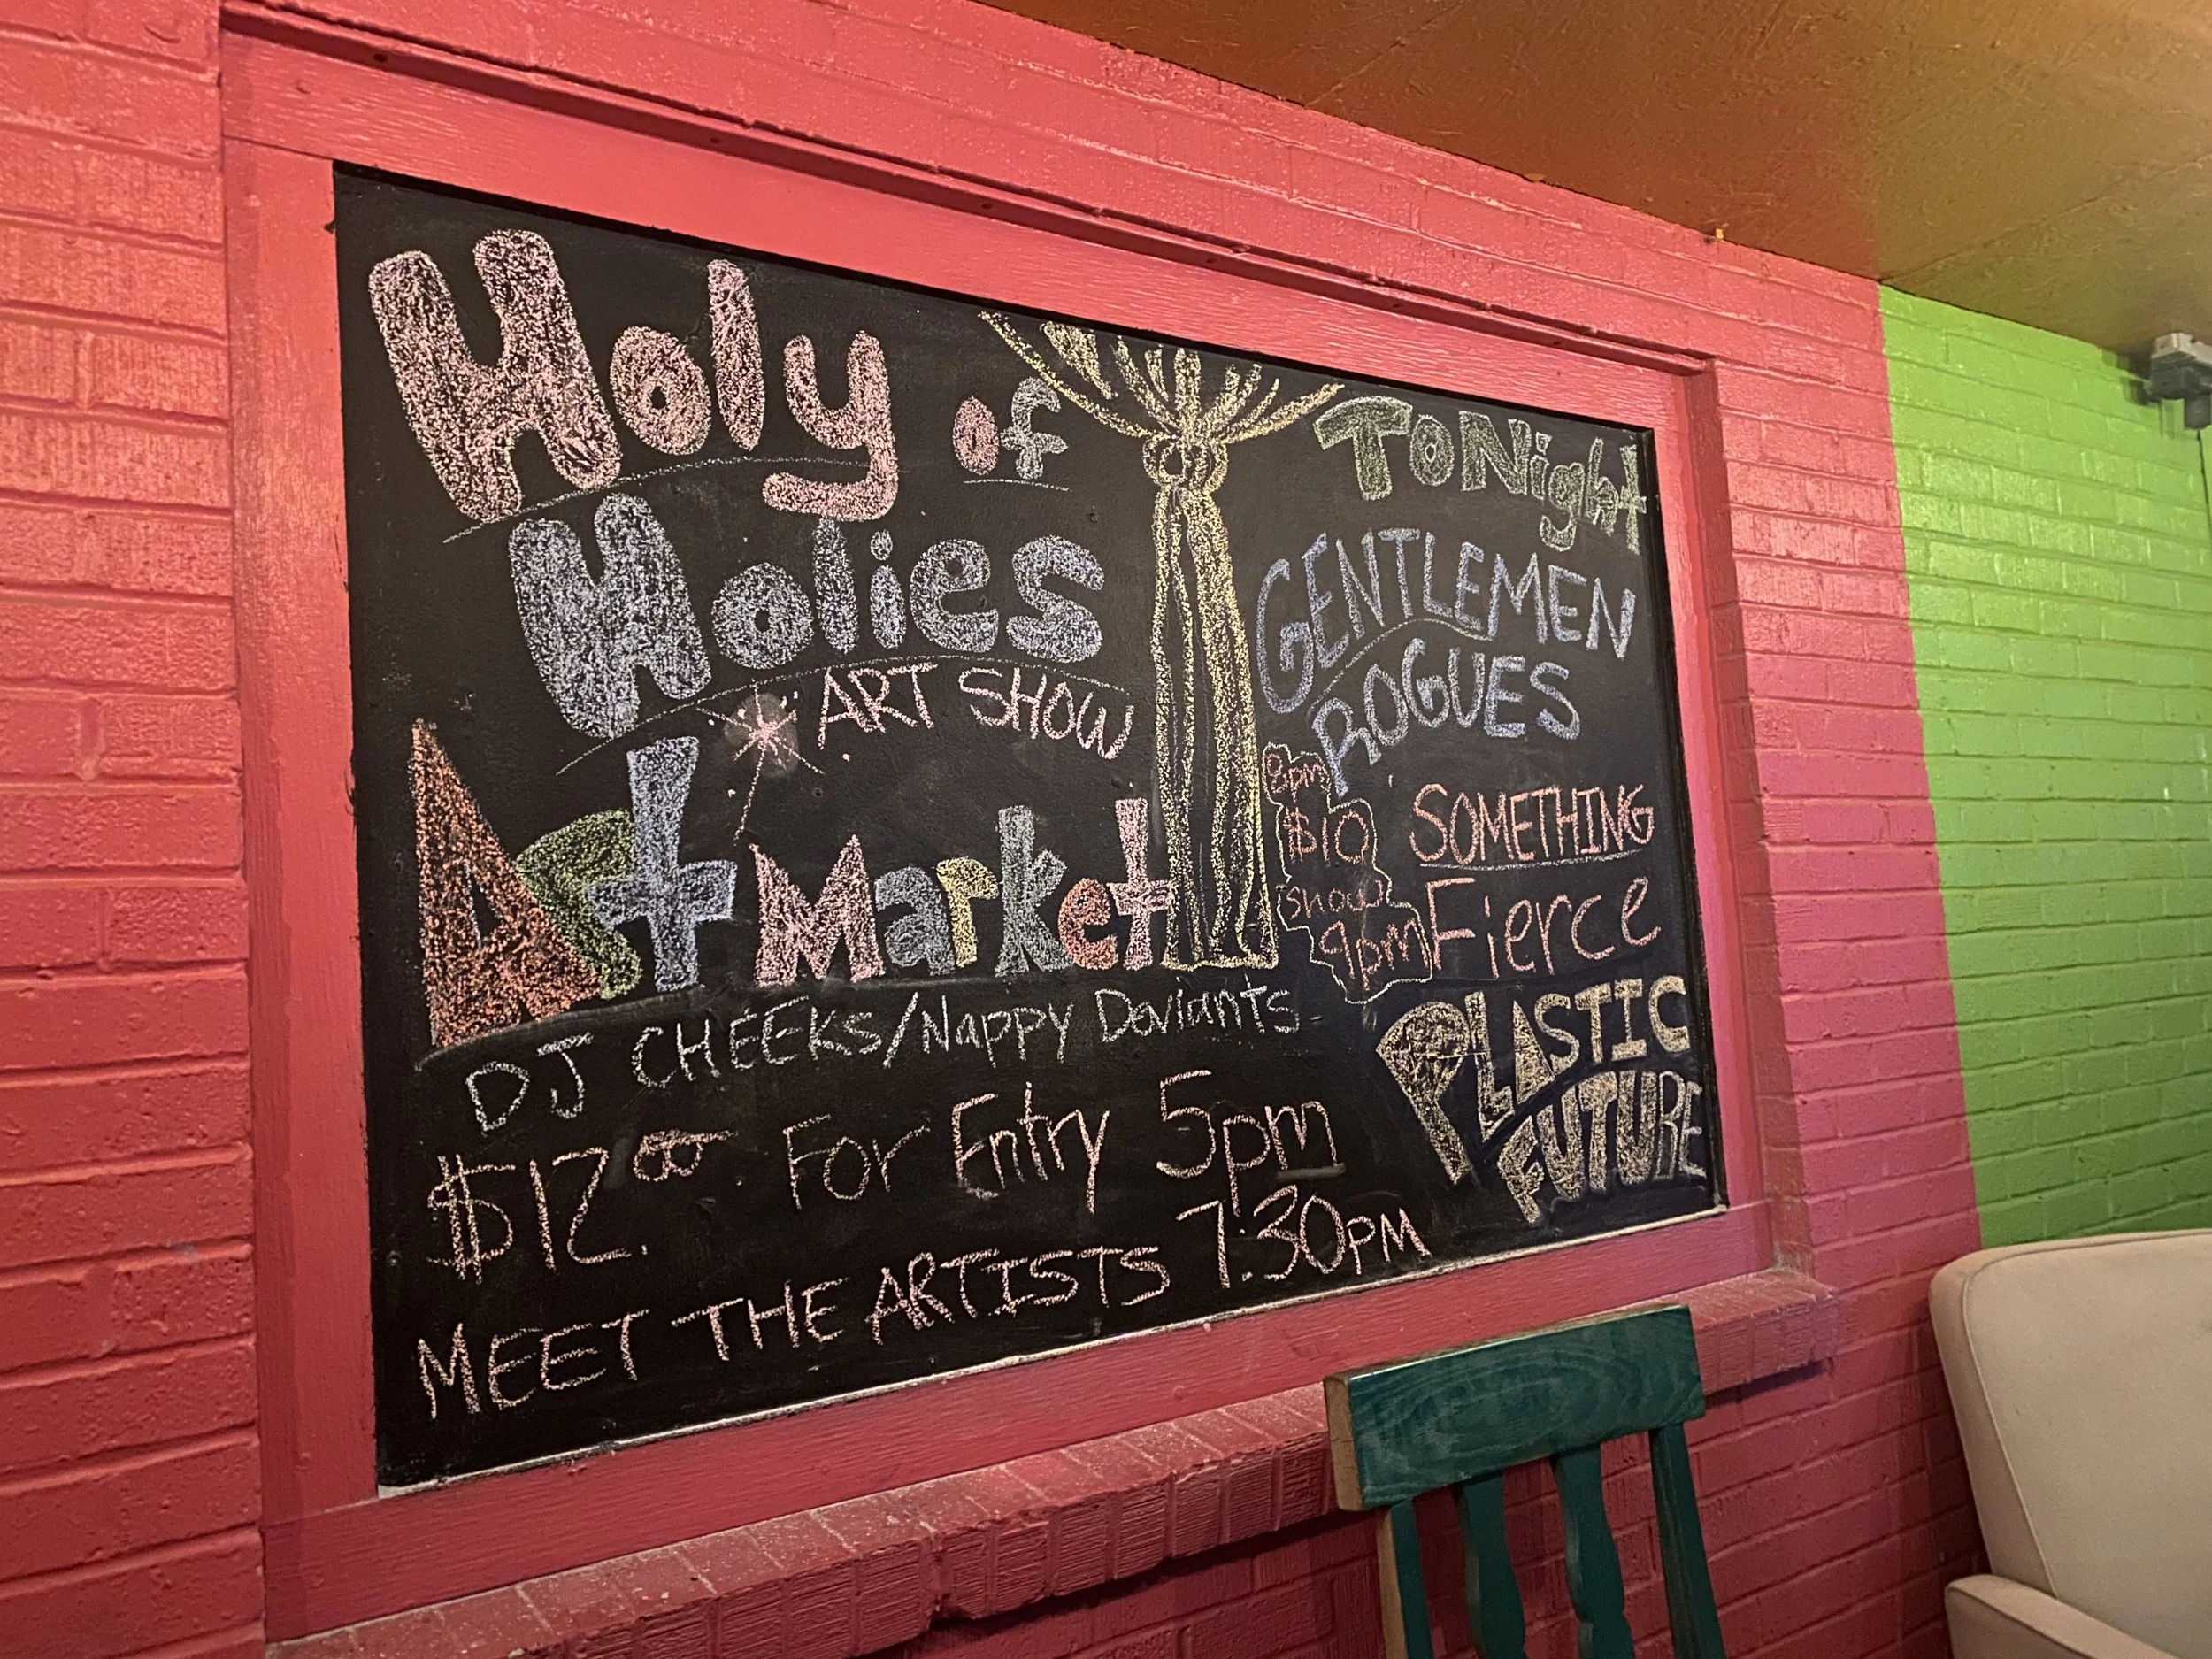 Holy of
Holies
ART SHOW
Art Market
DJ CHEEKS/Nappy Deviants
$12.00 For Entry 5pm
MEET THE ARTISTS 7:30PM
TONight
GENTLEMEN
ROGUES
8pm
$10
Show
9pm
SOMETHING
Fierce
PLASTIC
FUTURE